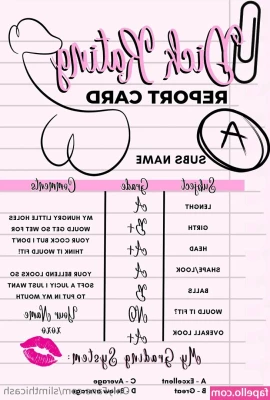 Dick Rating
REPORT CARD
A
SUBS NAME
Subject Grade Comments
LENGHT A
GIRTH B+
HEAD A+
SHAPE/LOOK A
BALLS B
WOULD IT FIT? NO
OVERALL LOOK A+
MY HUNGRY LITTLE HOLES
WOULD GET SO WET FOR
YOUR COCK BUT I DON'T
THINK IT WOULD FIT
YOUR BELLEND LOOKS SO
SOFT A JUCIY I JUST WANT
TO PUT IN MY MOUTH
Your Name
xoxo
My Grading System:
A - Excellent
B - Great
C - Average
D - Below average
fapello.com